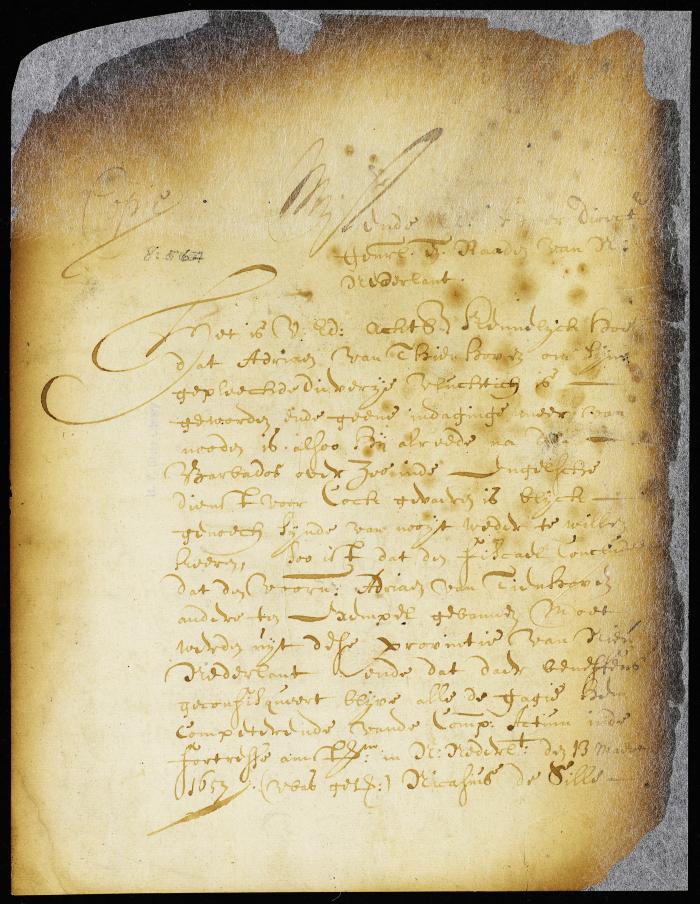 Copie
ende Direct
Genrl. Raaden van N:
Nederlant.
8:564
Het is U: Ed: Achtb: kennelyck hoe
dat Adriaen van Thienhoven om syne
gepleechde dieverye vluchtich is
geworden ende geene indaginge meer van
nooden is. alsoo hy alreede na
Barbados over Zee inde Engelsche
dienst voor Cock gevaren is blyck
genoech synde van nooyt weder te willen
keeren, soo ist dat den fiscael Concludeert
dat den voorn: Adriaen van Tienhoven
andere ten Exempel gebannen moet
werden uyt dese provintie van Nieu
Nederlant ende dat daer beneffens
geconfisqueert blyve alle de gagie hem
Competerende vande Comp: Actum inde
fortresse amst: in N: Nederlt: den 13 Maert
1657 (was get:) Nicasius de Sille